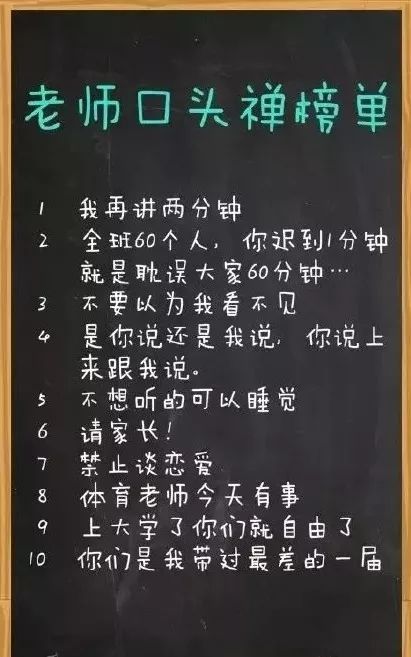 老师口头禅榜单
1 我再讲两分钟
2 全班60个人，你迟到1分钟
就是耽误大家60分钟…
3 不要以为我看不见
4 是你说还是我说，你说上
来跟我说。
5 不想听的可以睡觉
6 请家长！
7 禁止谈恋爱
8 体育老师今天有事
9 上大学了你们就自由了
10 你们是我带过最差的一届